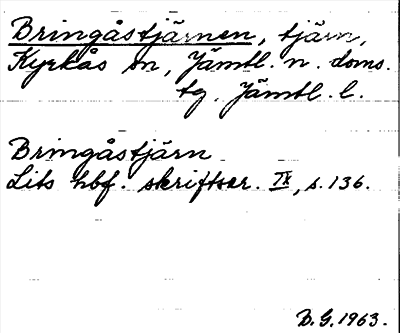 Bringåstjärnen, tjärn,
Kyrkås sn, Jämtl. n. doms.
tg. Jämtl. l.
Bringåstjärn
Lits hbf. skriftser. IX, s. 136.
B.G. 1963.